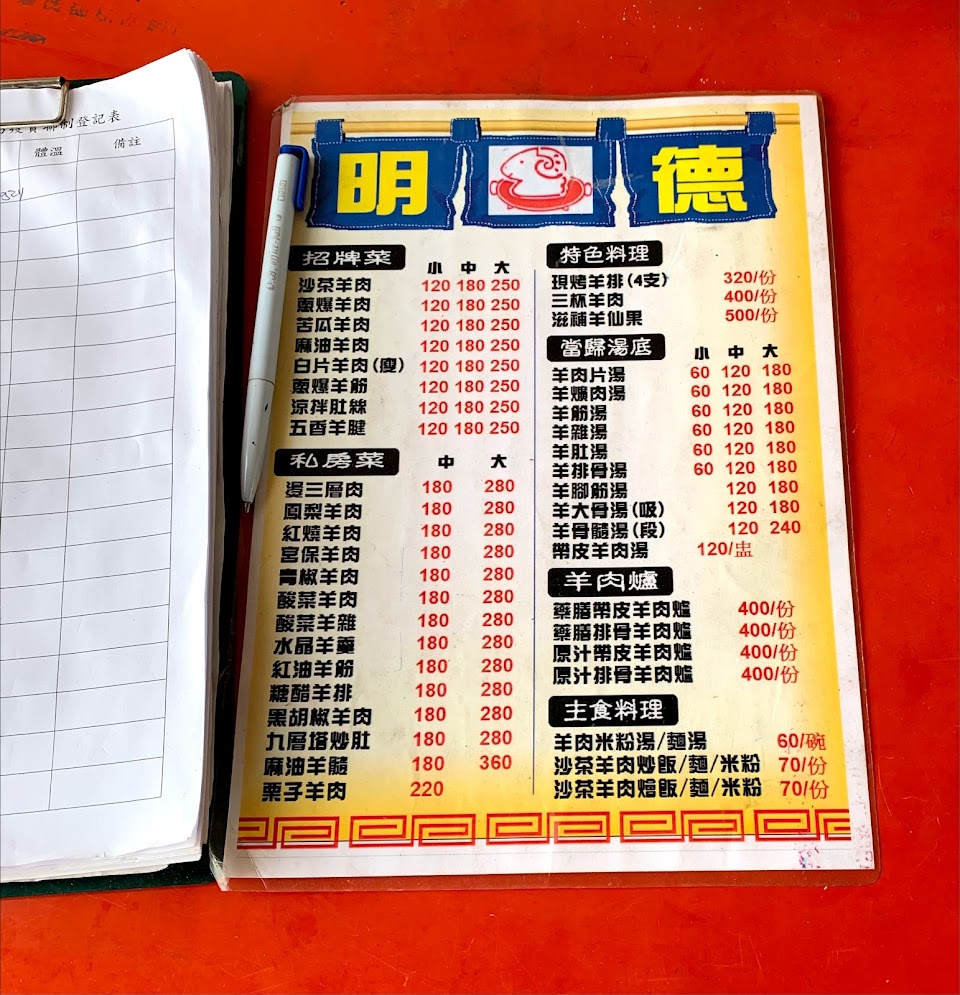 聯制登記表
體溫
備註
明 德
招牌菜 小 中 大
沙茶羊肉 120 180 250
蔥爆羊肉 120 180 250
苦瓜羊肉 120 180 250
麻油羊肉 120 180 250
白片羊肉(瘦) 120 180 250
蔥爆羊筋 120 180 250
涼拌肚絲 120 180 250
五香羊腱 120 180 250
私房菜 中 大
燙三層肉 180 280
鳳梨羊肉 180 280
紅燒羊肉 180 280
宮保羊肉 180 280
青椒羊肉 180 280
酸菜羊肉 180 280
酸菜羊雜 180 280
水晶羊羹 180 280
紅油羊筋 180 280
糖醋羊排 180 280
黑胡椒羊肉 180 280
九層塔炒肚 180 280
麻油羊髓 180 360
栗子羊肉 220
特色料理
現烤羊排(4支) 320/份
三杯羊肉 400/份
滋補羊仙果 500/份
當歸湯底 小 中 大
羊肉片湯 60 120 180
羊爌肉湯 60 120 180
羊筋湯 60 120 180
羊雜湯 60 120 180
羊肚湯 60 120 180
羊排骨湯 60 120 180
羊腳筋湯 120 180
羊大骨湯(吸) 120 180
羊骨髓湯(段) 120 240
帶皮羊肉湯 120/盅
羊肉爐
藥膳帶皮羊肉爐 400/份
藥膳排骨羊肉爐 400/份
原汁帶皮羊肉爐 400/份
原汁排骨羊肉爐 400/份
主食料理
羊肉米粉湯/麵湯 60/碗
沙茶羊肉炒飯/麵/米粉 70/份
沙茶羊肉燴飯/麵/米粉 70/份